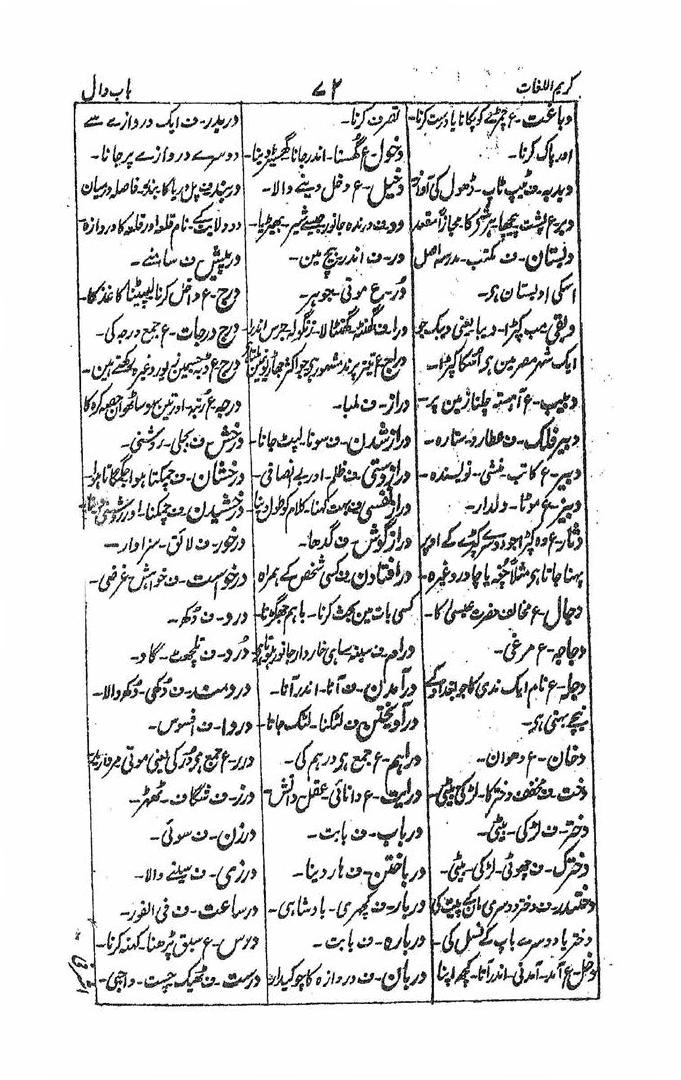 کریم اللغات
۷۲
باب دال
دباغت - ع چمڑے کو پکانا یا درست کرنا -
اور پاک کرنا -
دبدبہ - ف ٹیپ ٹاپ - ڈھول کی آواز
دبر - ع پشت پیچھا ہر شے کا - مجازاً مقعد
دبستان - ف مکتب - مدرسہ اصل
اسکی ادبستان ہو -
دبیقی - ایک کپڑا - دیبا یعنی دبیق جو
ایک شہر مصر مین ہو اسکا کپڑا -
دبیب - ع آہستہ چلنا زمین پر -
دبیر فلک - ف عطارد ستارہ -
دبیر - ع کاتب - منشی - نویسندہ -
دبیز - ع موٹا - ولدار -
دثار - ع وہ کپڑا جو دوسرے کپڑے کے اوپر
پہنا جاتا ہو مثلاً جُبّہ یا چادر وغیرہ -
دجال - ع مخالف حضرت عیسیٰ کا -
دجاجہ - ع مرغی -
دجلہ - ع نام ایک ندی کا جو بغداد کے
نیچے بہتی ہو -
دخان - ع دھوان -
دخت - ف مخفف دختر کا - لڑکی - بیٹی -
دختر - ف لڑکی - بیٹی -
دخترک - ف چھوٹی لڑکی - بیٹی -
دختندر - ف دختر دوسری مان کے پیٹ کی
دختر یا دوسرے باپ کے نسل کی -
دخل - ع آمد - آمدنی - اندر آنا - کچھ اپنا
تصرف کرنا -
دخول - ع گھسنا - اندر جانا گھسیڑ دینا -
دخیل - ع دخل دینے والا -
دد - ف درندہ جانور جیسے شیر - بھیڑیا -
در - ف اندر بیچ مین -
دُر - ع موتی - جوہر -
درا - ف گھنٹہ گھنٹالا - زنگولہ جرس اندر آ
دراج - ع تیتر پرند مشہور ہو جو اکثر جھاڑیونمین
دراز - ف لمبا -
دراز شدن - ف سونا - لیٹ جانا -
دراز دستی - ف ظلم - اور بے انصافی -
دراز نفسی - ف بہت کہنا - کلام کو طول دینا
دراز گوش - ف گدھا -
درافتادن - ف کسی شخص کے ہمراہ
کسی بات مین بحث کرنا - باہم جھگڑنا -
درام - ف سیہی خاردار جانور ہوتا ہو
درآمدن - ف آنا - اندر آنا -
درآویختن - ف لٹکنا - لٹک جانا -
دراہم - ع جمع ہو درہم کی -
درایت - ع دانائی - عقل - دانش
درباب - ف بابت -
درباختن - ف ہار دینا -
دربار - ف کچہری - بادشاہی -
دربارہ - ف بابت -
دربان - ف دروازہ کا چوکیدار
دربدر - ف ایک دروازے سے
دوسرے دروازے پر جانا -
دربند - ف پل دریا کا بند و فاصلہ درمیان
دو ولایت کے - نام قلعہ اور قلعہ کا دروازہ
درپیش - ف سامنے -
درج - ع داخل کرنا لپیٹنا کاغذ کا -
درج درجات - ع جمع درجہ کی -
درج - ع ڈبہ جسمین زیور وغیرہ رکھتے ہین -
درجہ - ع رتبہ - اور تین سو ساٹھوان حصہ کرہ کا
درخش - ف بجلی - روشنی -
درخشان - ف چمکتا ہوا جگمگاتا ہوا -
درخشیدن - ف چمکنا - اور روشنی دینا
درخور - ف لائق - سزاوار -
درخواست - ف خواہش عرضی -
درد - ف دُکھ -
دُرد - ف تلچھٹ - گاد -
دردمند - ف دُکھی - دُکھ والا -
دردا - ف افسوس -
درر - ع جمع ہو دُر کی یعنی موتی مروارید
درز - ف شگاف -
درزن - ف سوئی -
درزی - ف سینے والا -
درساعت - ف فی الفور -
درس - ع سبق پڑھنا - کہنہ کرنا -
درست - ف ٹھیک چست - واجبی -